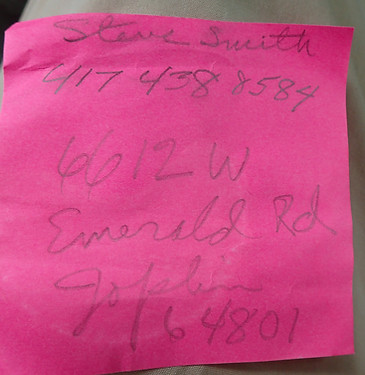 Steve Smith
417 438 8584
6612 W
Emerald Rd
Joplin
64801